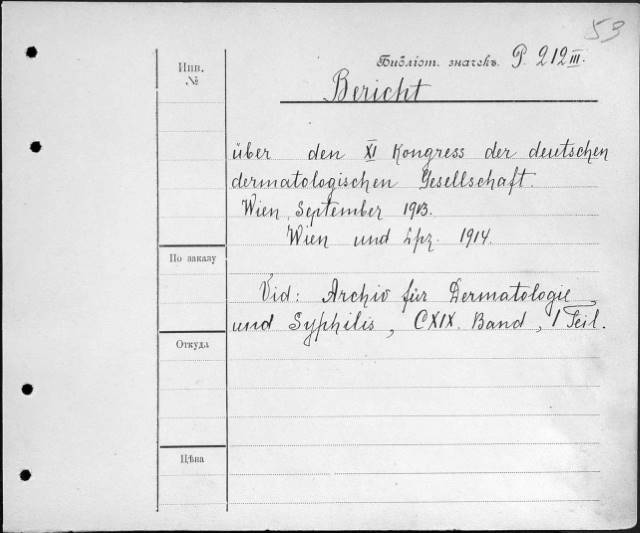 53
Инв. №
Библіот. значекъ. P. 212 III.
Bericht
über den XI Kongress der deutschen
dermatologischen Gesellschaft.
Wien, September 1913.
Wien und Lpz. 1914.
По заказу
Vid: Archiv für Dermatologie
und Syphilis, CXIX. Band, 1 Teil.
Откуда
Цѣна